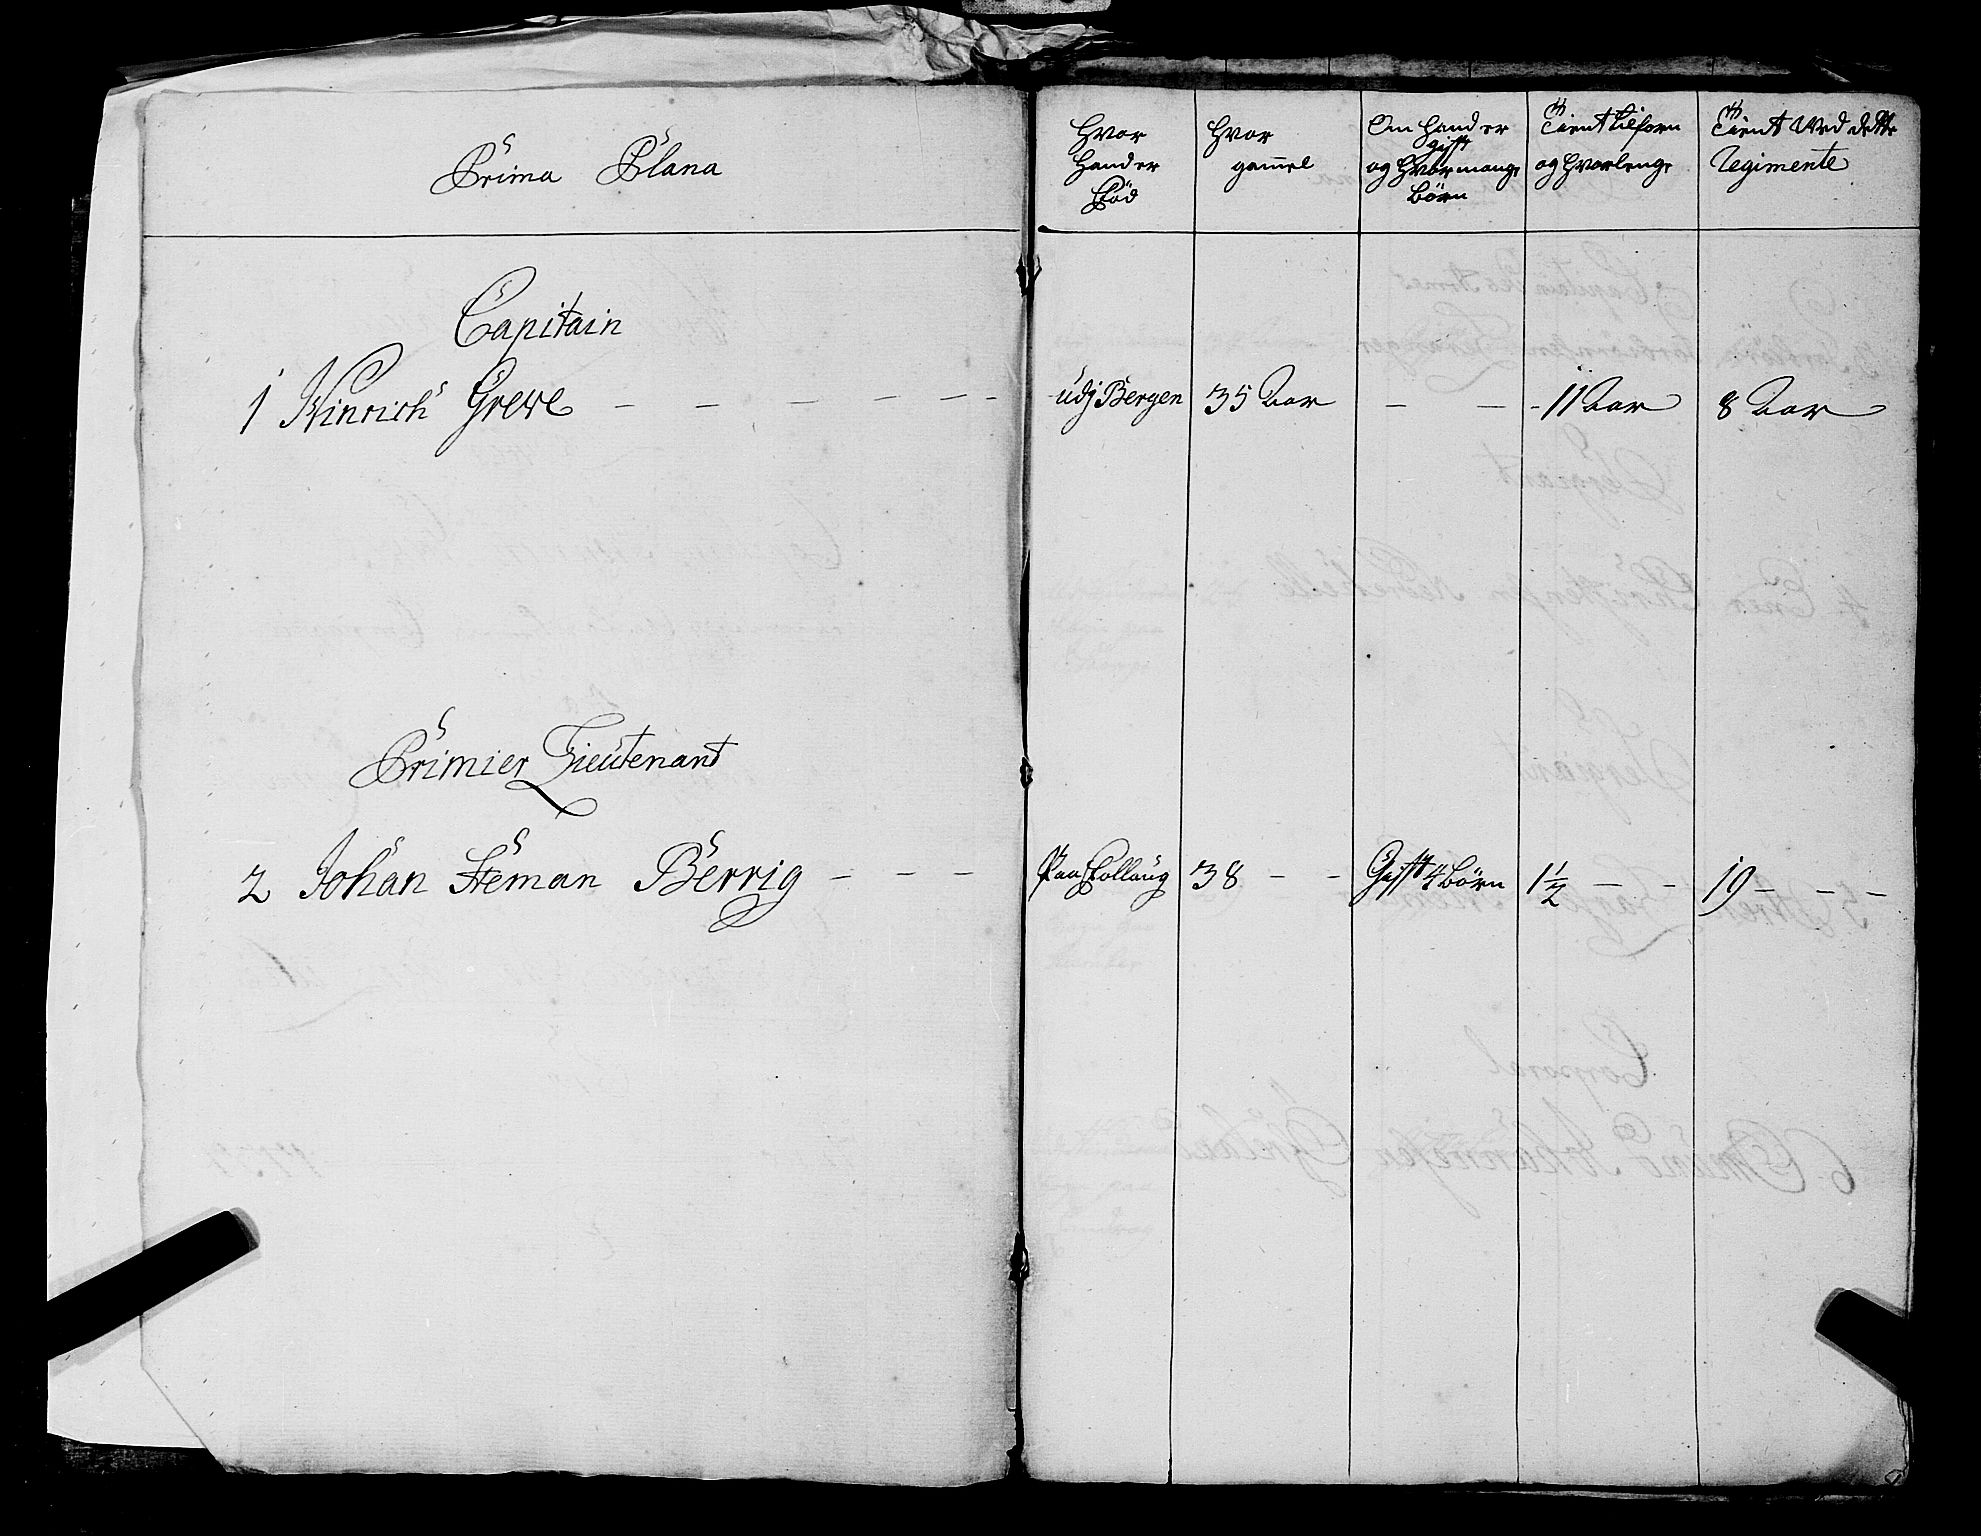 Prima Plana
Capitain
1 Hinrich Grewe
Primier Lieutenant
2 Johan Steman Berrig
Hvor Hand er Fød
Hvor gamel
Om Hand er gift og Hvor mange Børn
Tient tilforn og Hvorlenge
Tient Ved dette Regimente
udj Bergen 35 Aar — — 11 Aar 8 Aar
Paa Tollaug 38 — — Gift 4 Børn 1½ — — 19 — — —